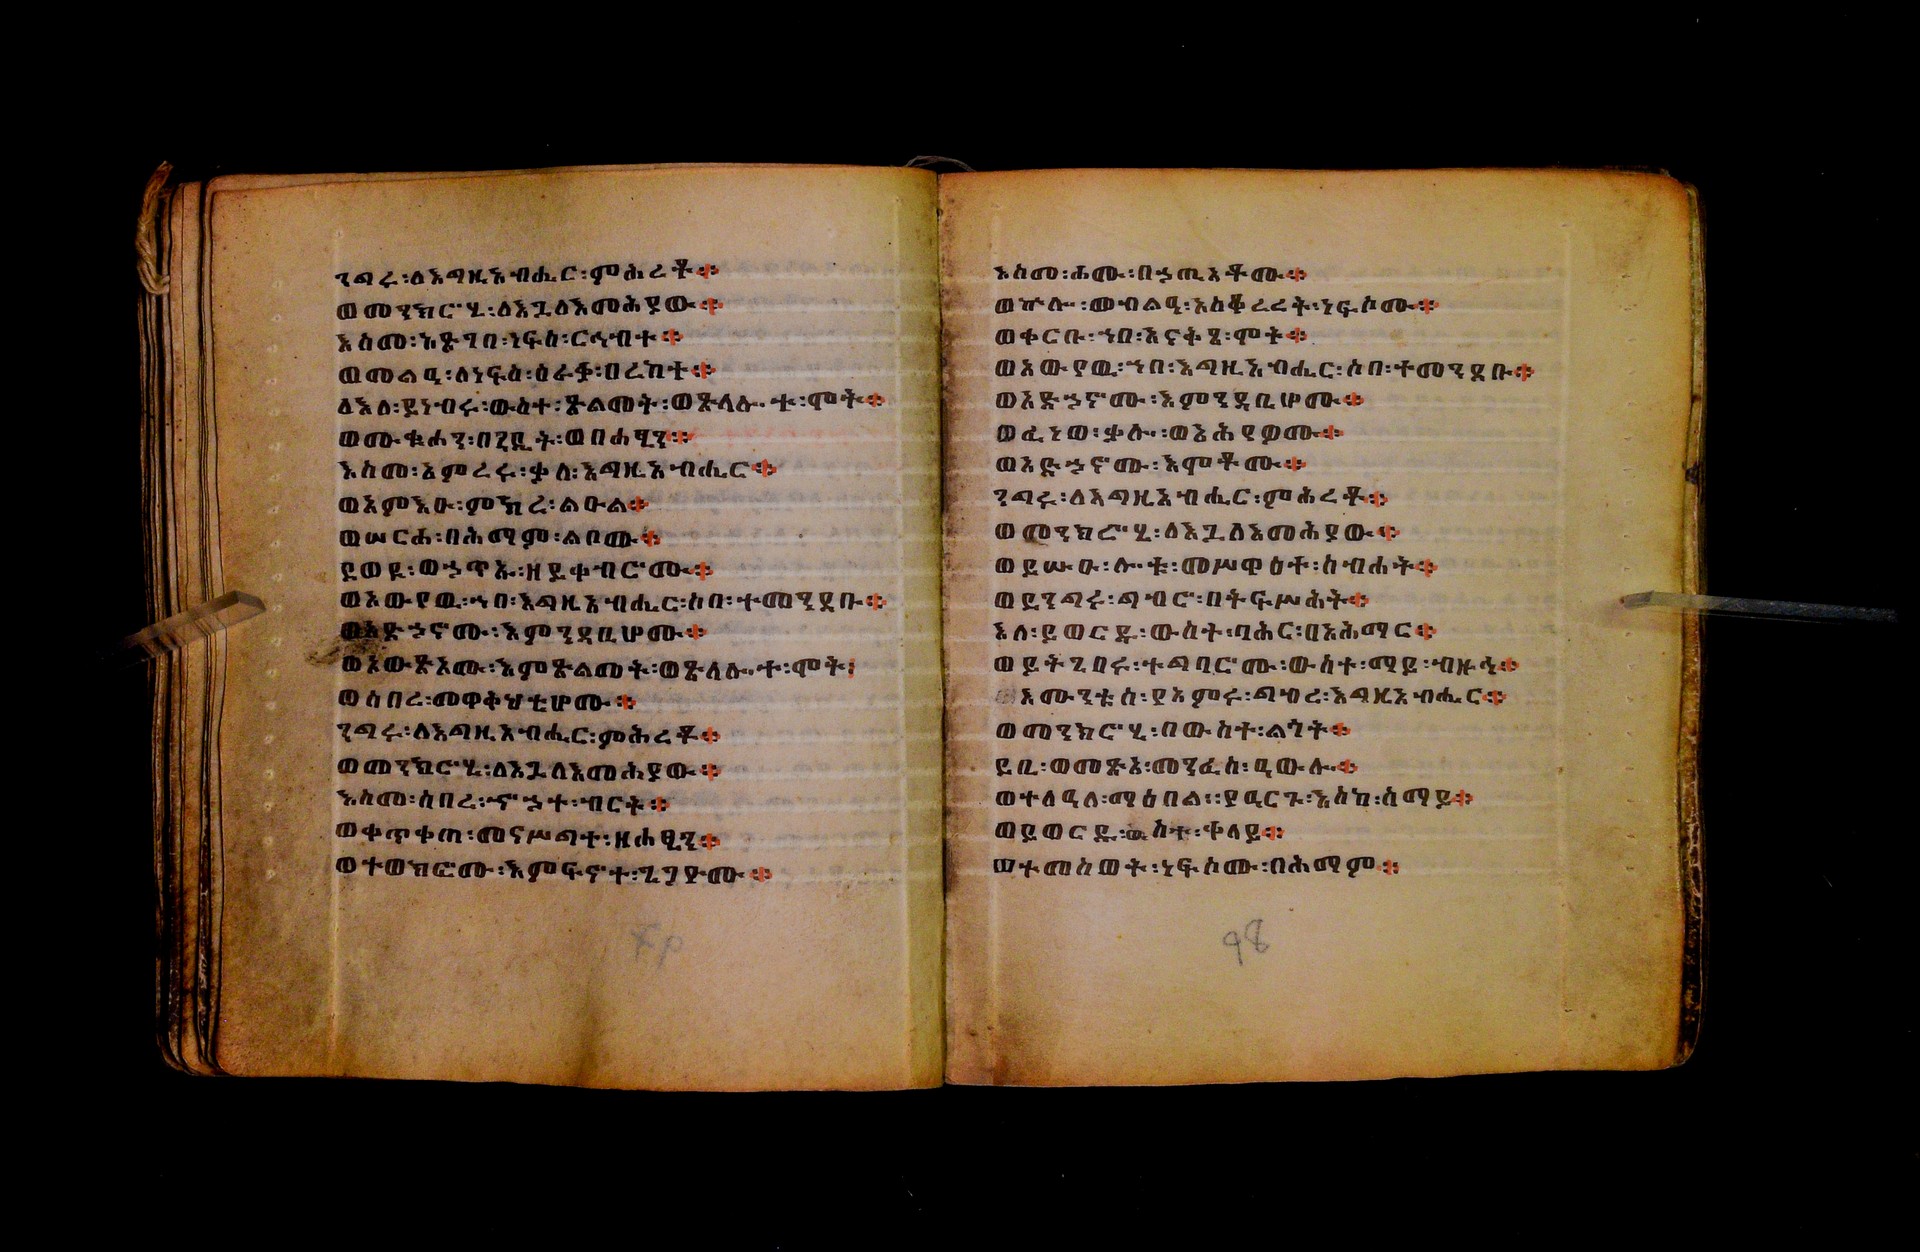 ንጋሩ፡ለእግዚአብሔር፡ምሕረቶ።
ወመንክሮሂ፡ለእጓለእመሕያው።
እስመ፡አጽገበ፡ነፍሰ፡ርኅብተ።
ወመልዐ፡ለነፍስ፡ዕራቃ፡በረከተ።
ለእለ፡ይነብሩ፡ውስተ፡ጽልመት፡ወጽላሎተ፡ሞት።
ወሙቁሐን፡በንዴት፡ወበሐፂን።
እስመ፡አምረሩ፡ቃለ፡እግዚአብሔር።
ወአምእዑ፡ምክረ፡ልዑል።
ወሠርሐ፡በሕማም፡ልቦሙ።
ደወዩ፡ወኃጥኡ፡ዘይቀብሮሙ።
ወአውየዉ፡ኀበ፡እግዚአብሔር፡ሶበ፡ተመንደቡ።
ወአድኃኖሙ፡እምንዳቤሆሙ።
ወአውጽአሙ፡እምጽልመት፡ወጽላሎተ፡ሞት፡
ወሰበረ፡መዋቅህቲሆሙ።
ንጋሩ፡ለእግዚአብሔር፡ምሕረቶ።
ወመንክሮሂ፡ለእጓለእመሕያው።
እስመ፡ሰበረ፡ኆኃተ፡ብርት።
ወቀጥቀጠ፡መናሥግተ፡ዘሐፂን።
ወተወክፎሙ፡እምፍኖተ፡ጌጋዮሙ።
97
እስመ፡ሐሙ፡በኃጢአቶሙ።
ወኵሉ፡መብልዐ፡አስቆረረት፡ነፍሶሙ።
ወቀርቡ፡ኀበ፡አናቅጸ፡ሞት።
ወአውየዉ፡ኀበ፡እግዚአብሔር፡ሶበ፡ተመንደቡ።
ወአድኃኖሙ፡እምንዳቤሆሙ።
ወፈነወ፡ቃሎ፡ወአሕየዎሙ።
ወአድኃኖሙ፡እሞቶሙ።
ንጋሩ፡ለእግዚአብሔር፡ምሕረቶ።
ወመንክሮሂ፡ለእጓለእመሕያው።
ወይሡዑ፡ሎቱ፡መሥዋዕተ፡ስብሐት።
ወይንግሩ፡ግብሮ፡በትፍሥሕት።
እለ፡ይወርዱ፡ውስተ፡ባሕር፡በአሕማር።
ወይትጌበሩ፡ተግባሮሙ፡ውስተ፡ማይ፡ብዙኅ።
እሙንቱሰ፡የአምሩ፡ግብረ፡እግዚአብሔር።
ወመንክሮሂ፡በውስተ፡ልጐት።
ይቤ፡ወመጽአ፡መንፈሰ፡ዐውሎ።
ወተለዓለ፡ማዕበል፡የዐርጉ፡እስከ፡ሰማይ።
ወይወርዱ፡ውስተ፡ቀላይ።
ወተመስወት፡ነፍሶሙ፡በሕማም።
98